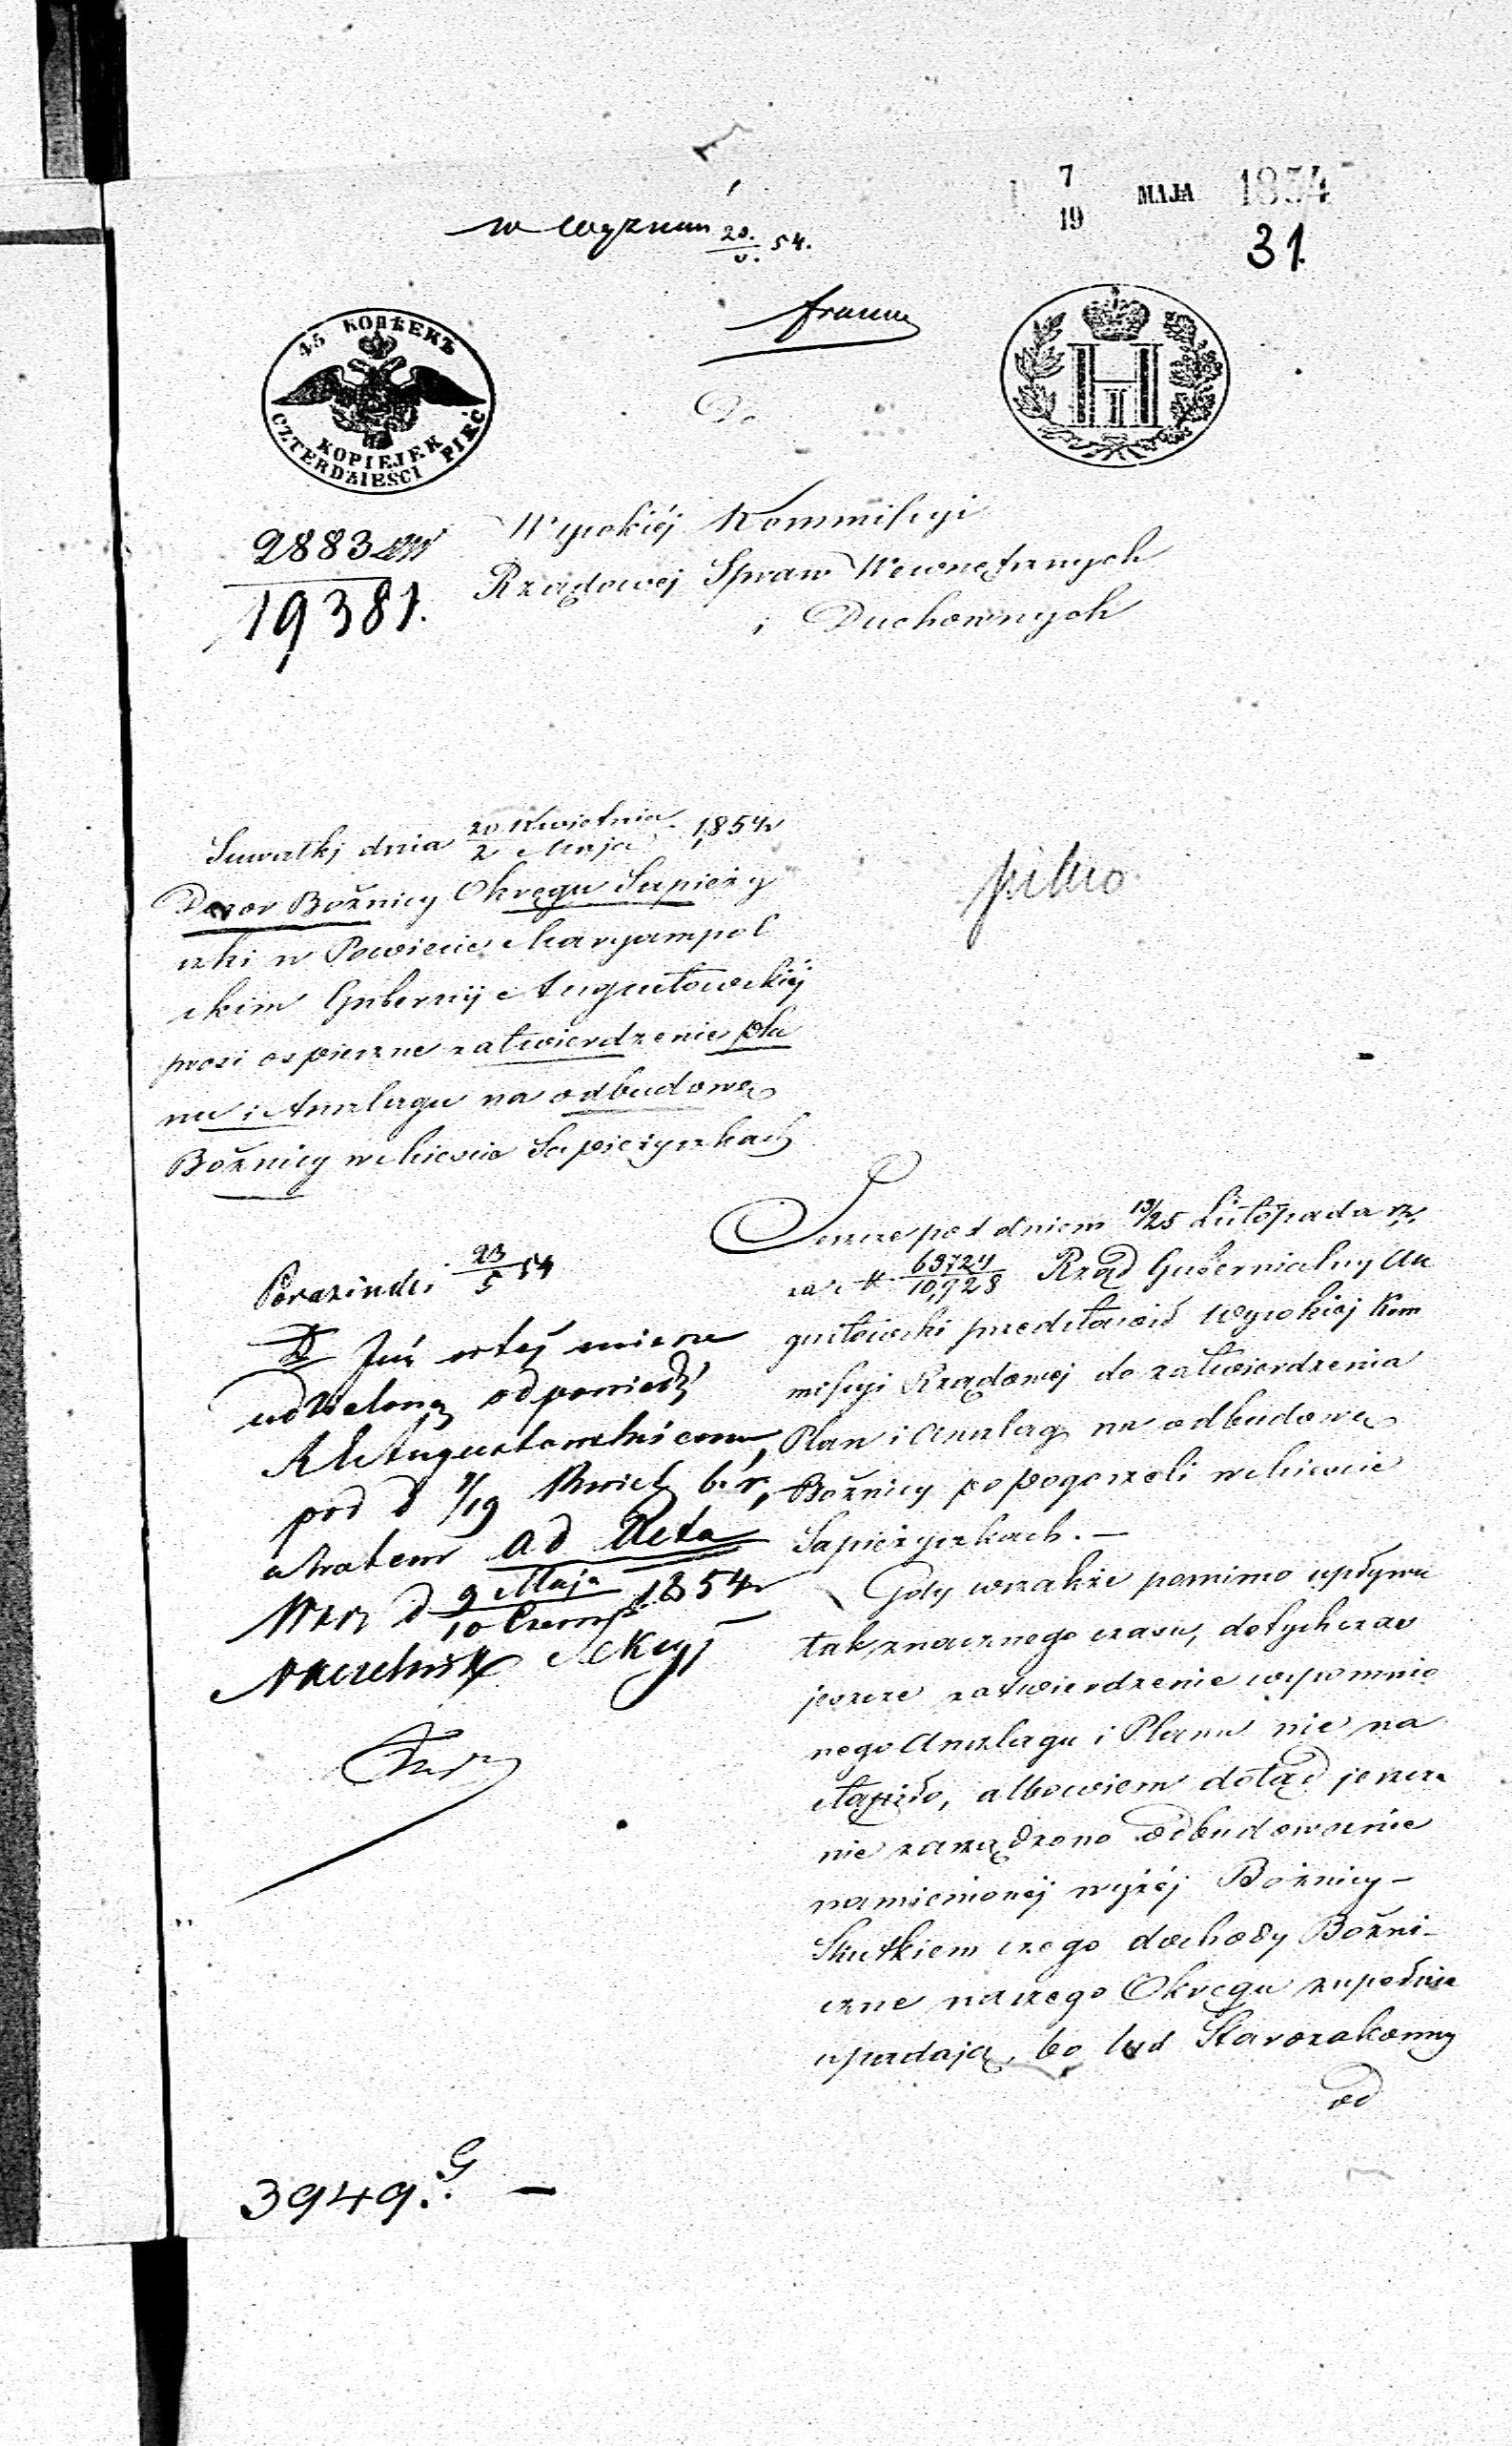 7
19 MAJA 1854
31
w wyznań 20./5. 54.
45 КОПѢЕКЪ
KOPIEJEK
CZTERDZIEŚCI PIĘĆ
Н I
Do
2883
19381.
Wysokiéj Kommissyi
Rządowéj Spraw Wewnętrznych
i Duchownych
Suwałki dnia 20 Kwietnia/2 Maja 1854r
Dozor Bożnicy Okręgu Sapieży
szki w Powiecie Maryampol
skim Gubernij Augustowskiéj
prosi ospieszne zatwierdzenie pla
nu i Anszlagu na odbudowę
Bożnicy w Mieście Sapieżyszkach
pilno
23/5 54
Już w téj mierze
udzieloną odpowiedź
R G Augustowskiemu
pod d 7/19 Kwiet b. r,
a zatem ad Acta
d 9 Maja/10 Czerw 1854r
Naczelnik Sekcyi
Jeszcze pod dniem 13/25 Listopada rz.
za № 63724/10,928 Rząd Gubernialny Au
gustowski przedstawił Wysokiéj Kom
missyi Rządowéj do zatwierdzenia
Plan i Anszlag na odbudowę
Bożnicy po pogorzeli w Mieście
Sapieżyszkach. —
Gdy wszakże pomimo upływu
tak znacznego czasu, dotychczas
jeszcze zatwierdzenie wspomnio
nego Anszlagu i Planu nie na
stąpiło, albowiem dotąd jeszcze
nie zarządzono odbudowanie
namienionéj wyżéj Bożnicy —
Skutkiem czego dochody Bożni-
czne naszego Okręgu zupełnie
upadają, bo lud Starozakonny
od
3949. G —